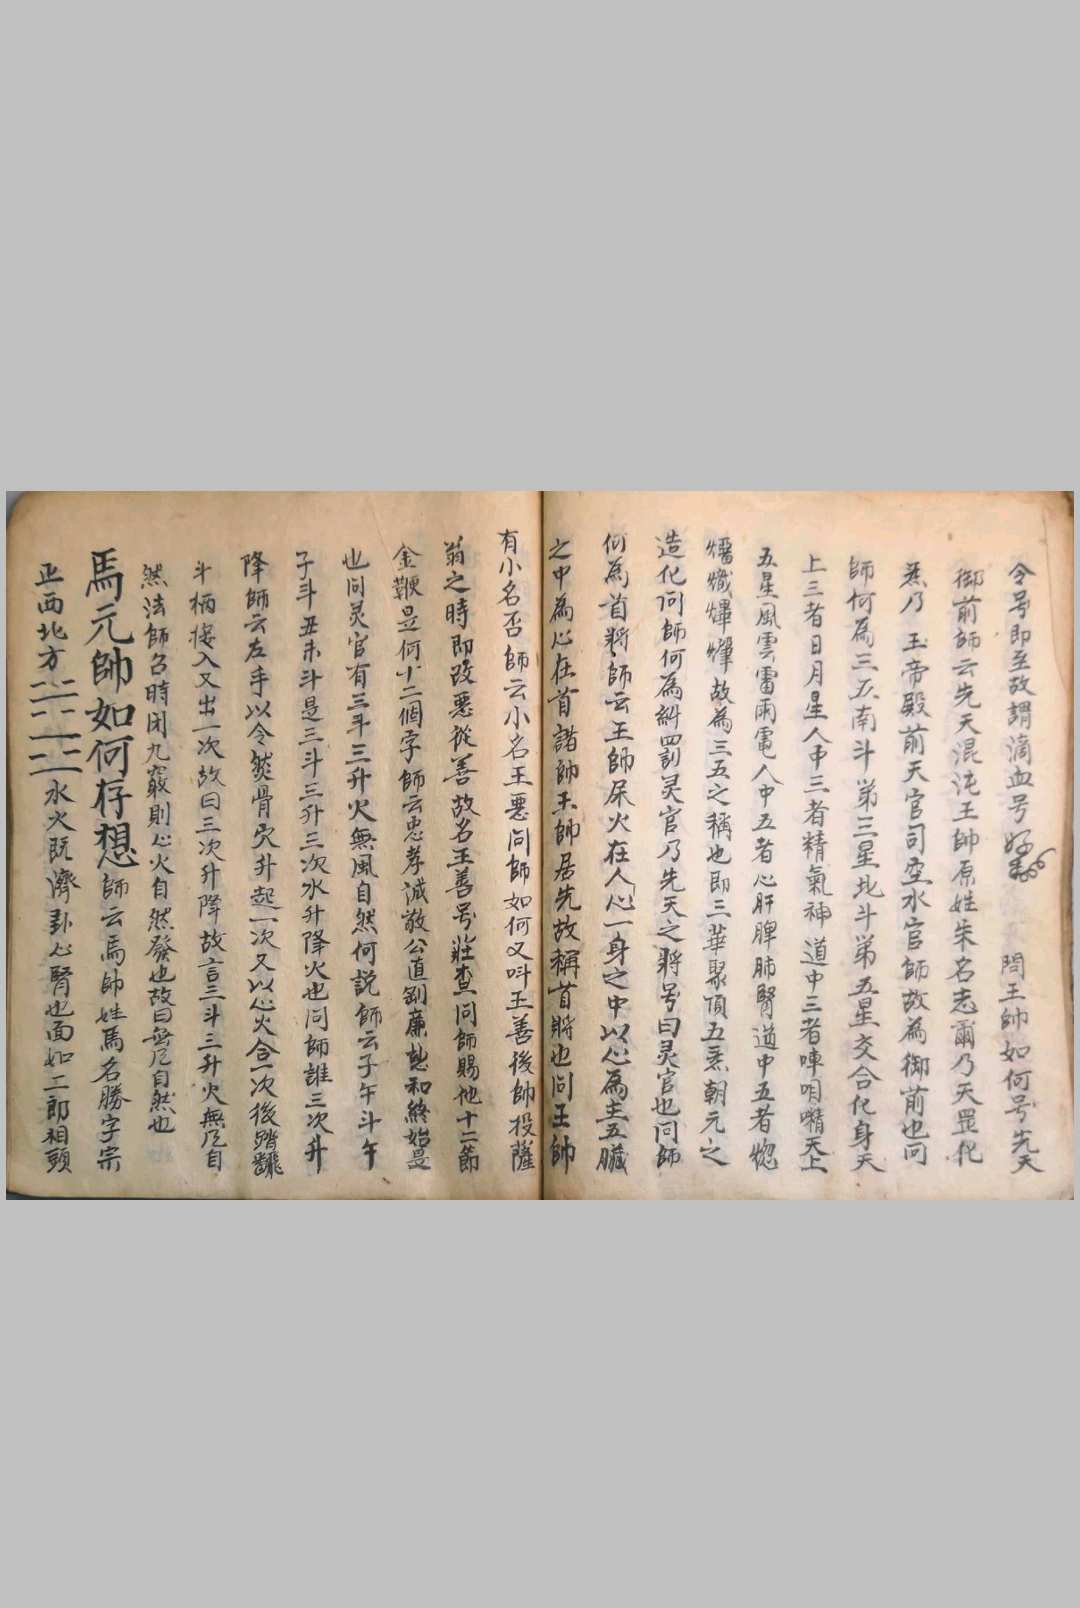 令号即至故謂滴血号 問王帥如何号先天
御前師云先天混沌王帥原姓朱名志爾乃天罡化
炁乃玉帝殿前天官司空水官師故為御前也问
師何為三五南斗苐三星北斗苐五星交合化身天
上三者日月星人中三者精氣神道中三者唓呬㗲天上
五星風雲雷雨電人中五者心肝脾肺腎道中五者
故為三五之稱也即三華聚頂五炁朝元之
造化问師何為糾罰灵官乃先天之將号曰灵官也问師
何為首將師云王帥屎火在人心一身之中以心為主五臟
之中為心在首諸帥王帥居先故稱首將也问王帥
有小名否師云小名王惡问師如何又呌王善後帥投薩
翁之時即改惡從善故名王善号莊查问師賜他十二節
金鞭是何十二個字師云忠孝誠敬公直剛廉慈和終始是
也问灵官有三斗三升火無風自然何説師云子午斗午
子斗丑未斗是三斗三升三次水升降火也问師誰三次升
降師云左手以令然骨灾升起一次又以心火合一次後踏
斗柄接入又出一次故曰三次升降故言三斗三升火無凬自
然法師召時闭九竅則心火自然發也故曰無凬自然也
馬元帥如何存想師云馬帥姓馬名勝字宗
正西北方水火既濟卦心腎也面如二郎相頭